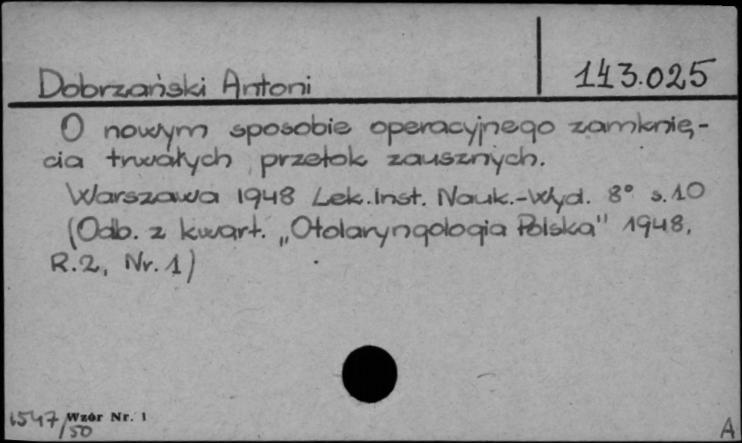 Dobrzański Antoni 143.025
O nowym sposobie operacyjnego zamknię-
cia trwałych przetok zausznych.
Warszawa 1948 Lek. Inst. Nauk.-Wyd. 8° s. 10
(Odb. z kwart. „Otolaryngologia Polska" 1948.
R. 2, Nr. 1)
1547/50 Wzór Nr. 1
A